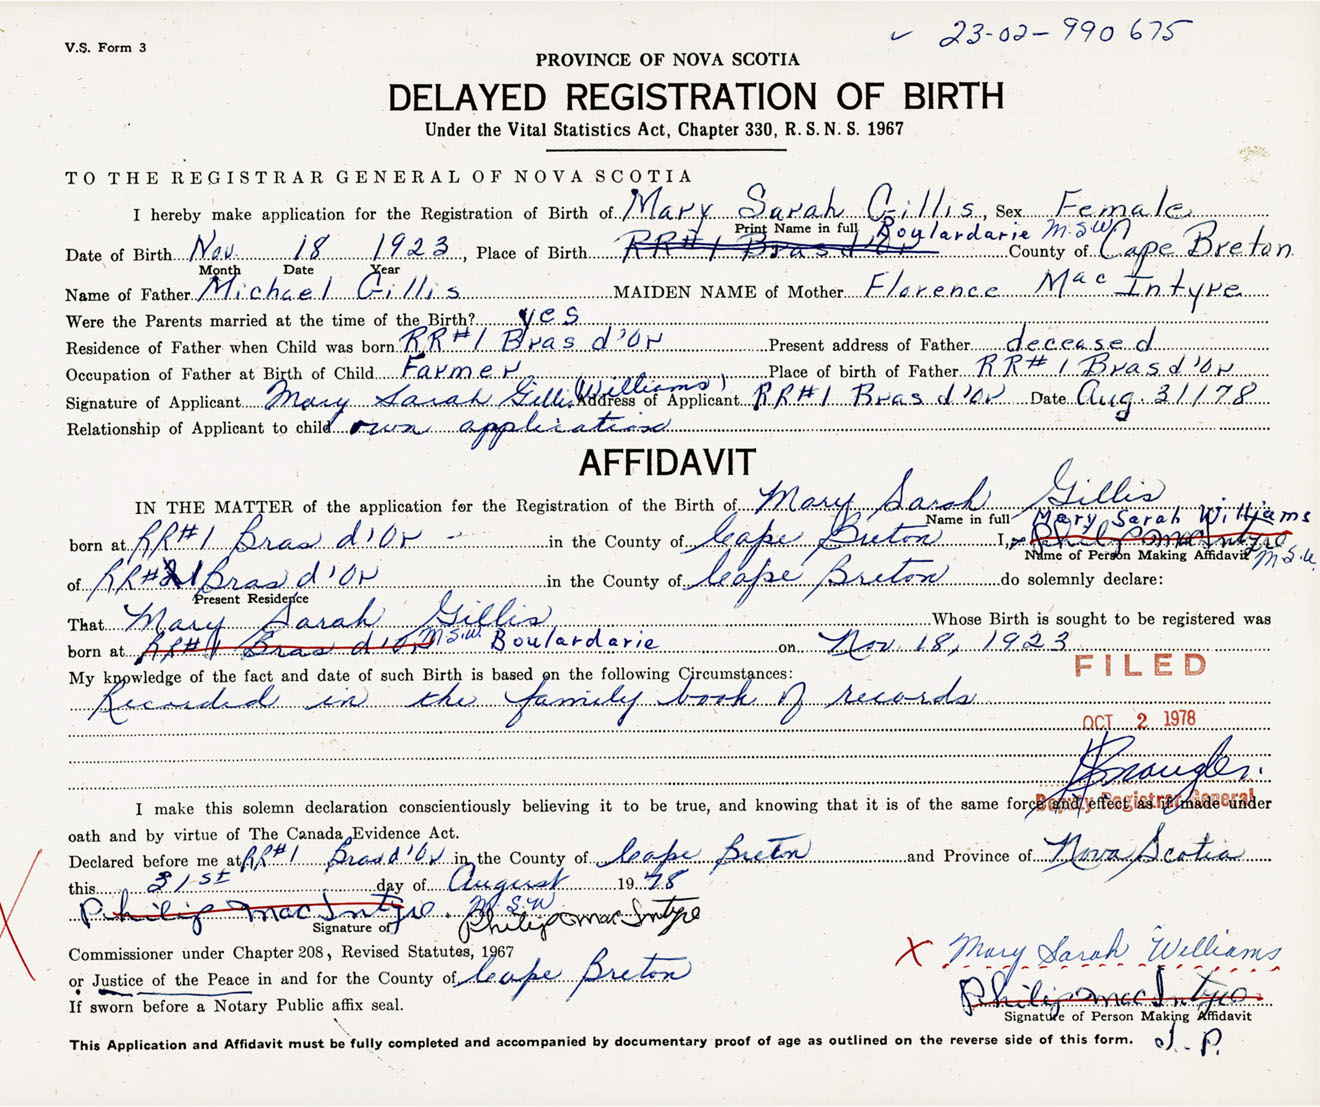 V.S. Form 3
✓ 23-02-990675
PROVINCE OF NOVA SCOTIA
DELAYED REGISTRATION OF BIRTH
Under the Vital Statistics Act, Chapter 330, R. S. N. S. 1967
TO THE REGISTRAR GENERAL OF NOVA SCOTIA
I hereby make application for the Registration of Birth of Mary Sarah Gillis, Sex Female
Print Name in full Boulardarie M.S.W
Date of Birth Nov. 18 1923, Place of Birth RR#1 Bras d'Or County of Cape Breton
Month Date Year
Name of Father Michael Gillis MAIDEN NAME of Mother Florence MacIntyre
Were the Parents married at the time of the Birth? yes
Residence of Father when Child was born RR#1 Bras d'Or Present address of Father deceased
Occupation of Father at Birth of Child Farmer Place of birth of Father RR#1 Bras d'Or
Signature of Applicant Mary Sarah Gillis (Williams) Address of Applicant RR#1 Bras d'Or Date Aug. 31/78
Relationship of Applicant to child own application
AFFIDAVIT
IN THE MATTER of the application for the Registration of the Birth of Mary Sarah Gillis
Name in full Mary Sarah Williams
born at RR#1 Bras d'Or in the County of Cape Breton I, Philip MacIntyre
Name of Person Making Affidavit M.S.W.
of RR#1 Bras d'Or in the County of Cape Breton do solemnly declare:
Present Residence
That Mary Sarah Gillis Whose Birth is sought to be registered was
born at RR#1 Bras d'Or M.S.W. Boulardarie on Nov. 18, 1923
My knowledge of the fact and date of such Birth is based on the following Circumstances:
FILED
Recorded in the family book of records
OCT 2 1978
I make this solemn declaration conscientiously believing it to be true, and knowing that it is of the same force and effect as if made under
Deputy Registrar General
oath and by virtue of The Canada Evidence Act.
Declared before me at RR#1 Bras d'Or in the County of Cape Breton and Province of Nova Scotia
this 31st day of August 1978
Philip MacIntyre. M.S.W
Signature of Philip MacIntyre
Commissioner under Chapter 208, Revised Statutes, 1967
X Mary Sarah Williams
or Justice of the Peace in and for the County of Cape Breton
Philip MacIntyre
If sworn before a Notary Public affix seal.
Signature of Person Making Affidavit
This Application and Affidavit must be fully completed and accompanied by documentary proof of age as outlined on the reverse side of this form.
J. P.